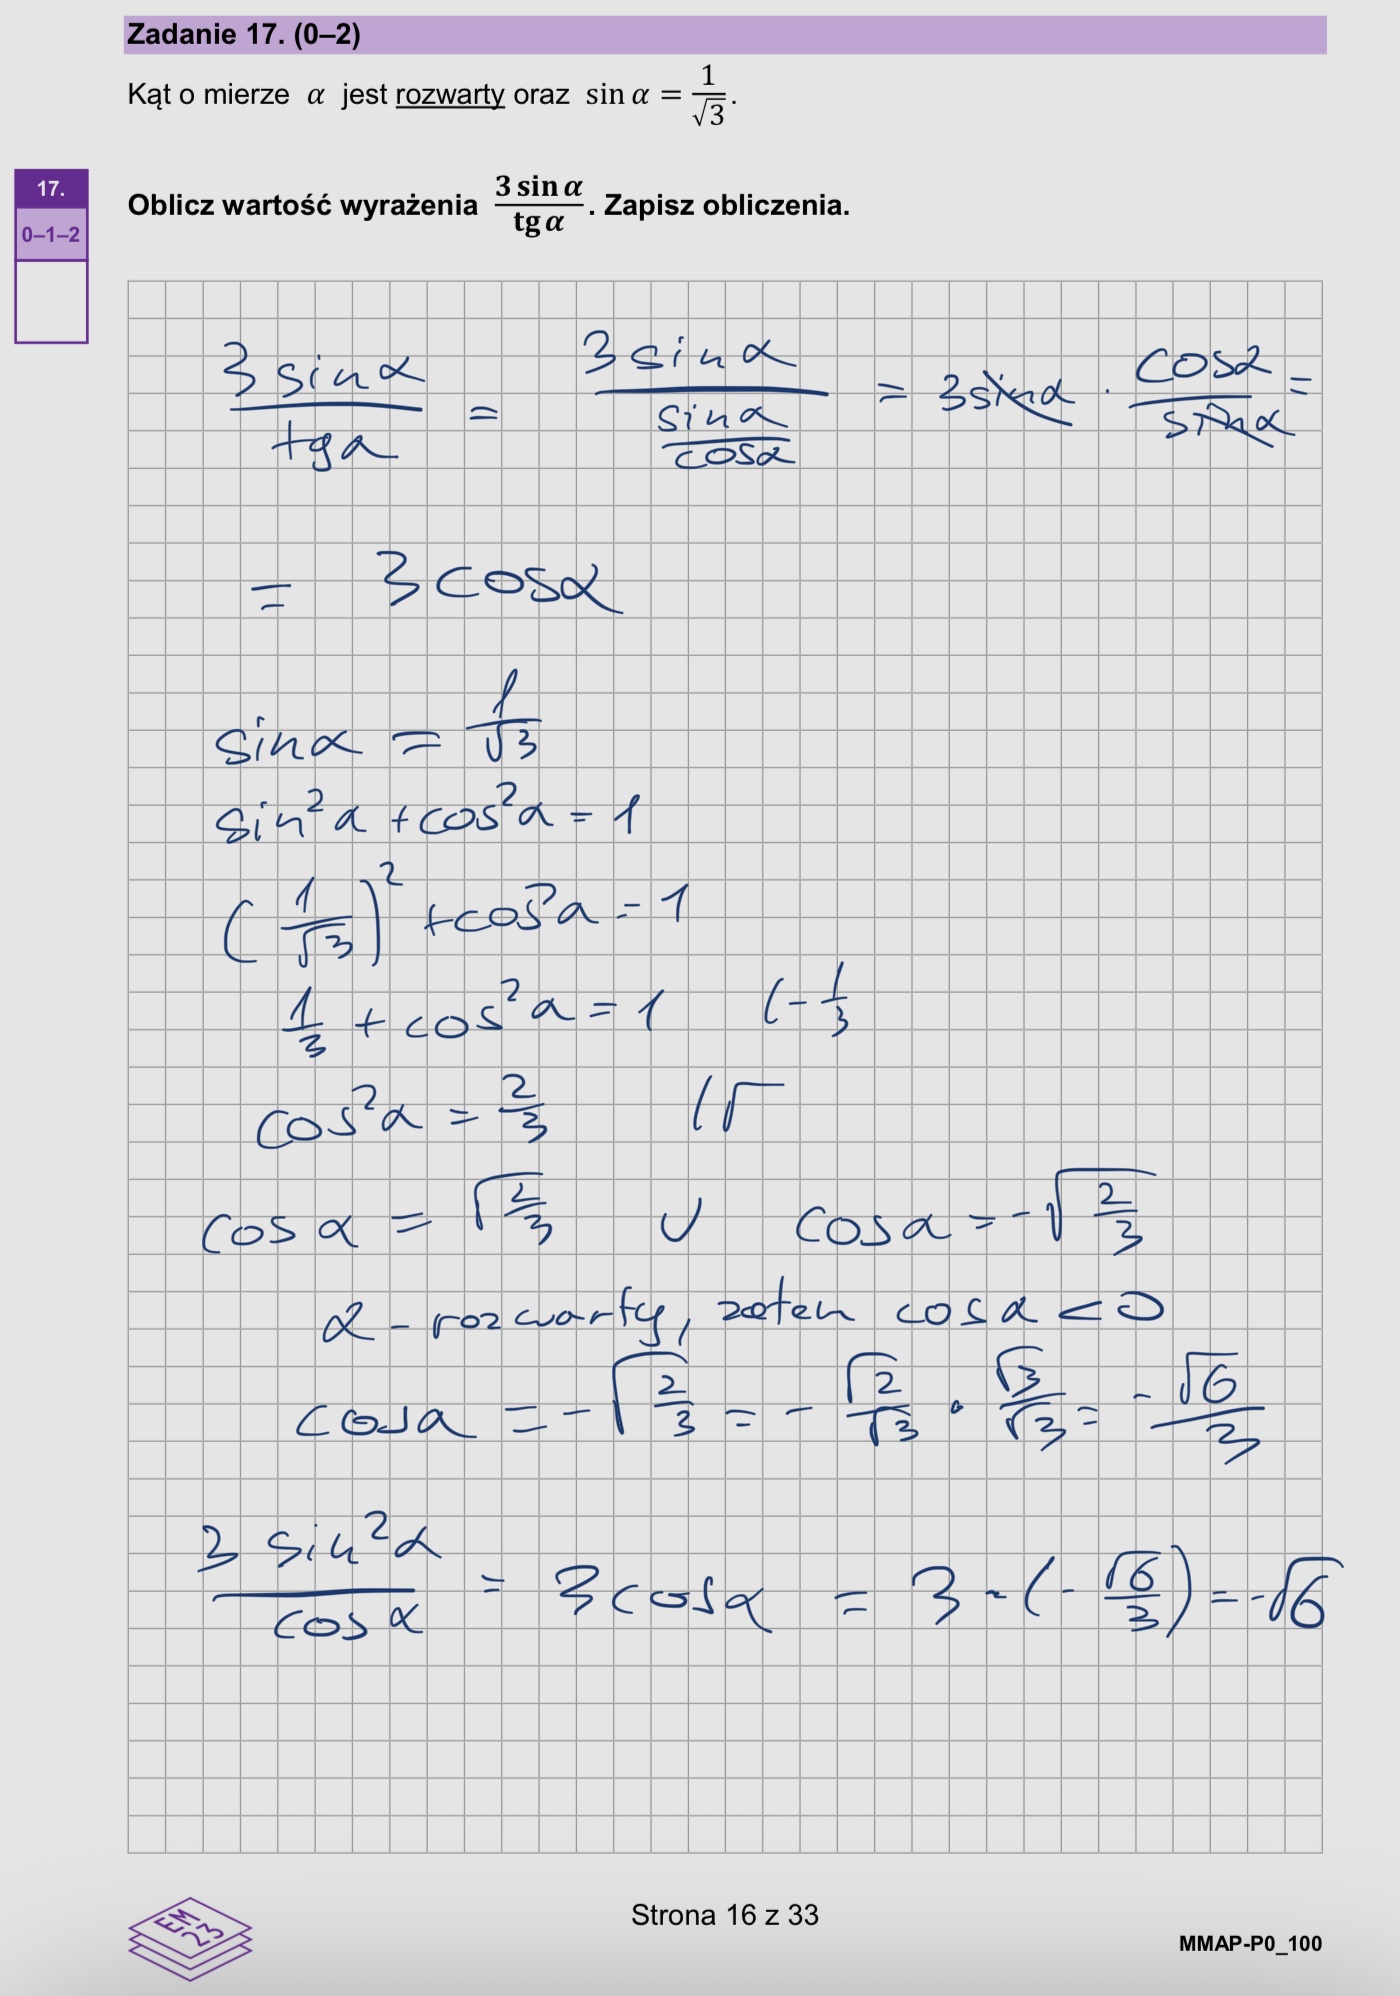 Zadanie 17. (0–2)
Kąt o mierze α jest rozwarty oraz sin α = 1/√3.
17.
0–1–2
Oblicz wartość wyrażenia 3 sin α / tg α. Zapisz obliczenia.
3 sinα / tgα = 3 sinα / (sinα / cosα) = 3sinα · cosα / sinα =
= 3 cosα
sinα = 1/√3
sin²α + cos²α = 1
(1/√3)² + cos²α = 1
1/3 + cos²α = 1 (- 1/3
cos²α = 2/3 (√
cos α = √(2/3) ∪ cos α = -√(2/3)
α - rozwarty, zatem cos α < 0
cosα = -√(2/3) = - √2/√3 · √3/√3 = - √6/3
3 sin²α / cos α = 3 cosα = 3 · (- √6/3) = -√6
EM
23
Strona 16 z 33
MMAP-P0_100